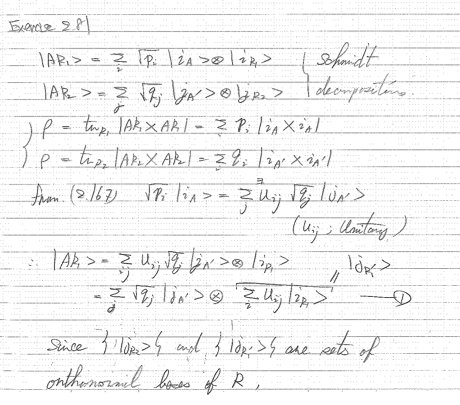 Exercise 2.81
|AR₁> = Σ_i √p_i |i_A>⊗|i_R₁> } Schmidt
|AR₂> = Σ_j √q_j |j_A'>⊗|j_R₂> decomposition.
ρ = tr_R₁ |AR₁><AR₁| = Σ_i p_i |i_A><i_A|
ρ = tr_R₂ |AR₂><AR₂| = Σ_i q_i |i_A'><i_A'|
from (2.167) √p_i |i_A> = Σ_j ∃u_ij √q_j |j_A'>
(u_ij ; Unitary)
∴ |AR₁> = Σ_ij u_ij √q_j |j_A'>⊗|i_R₁> |j_R'>
= Σ_j √q_j |j_A'>⊗ Σ_i u_ij |i_R₁> ―①
Since {|j_R₂>} and {|j_R'>} are sets of
orthonormal bases of R,